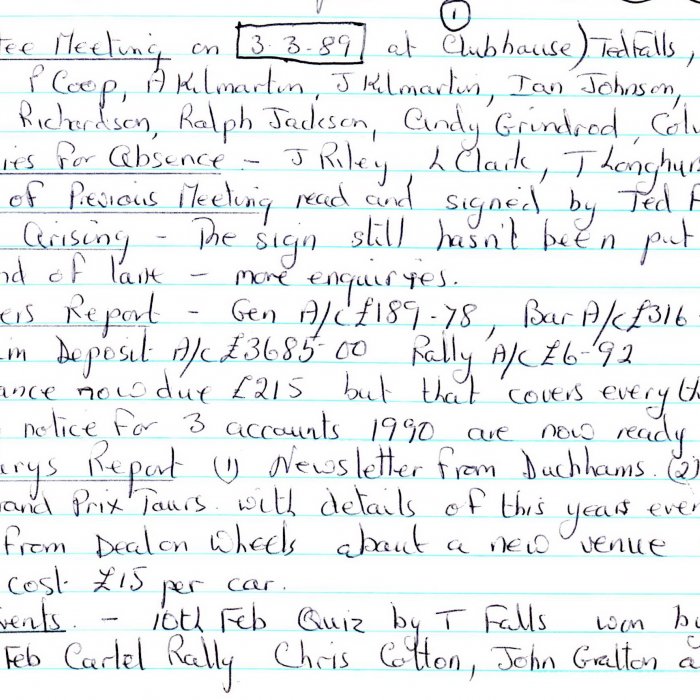 ①
tee Meeting on 3.3.89 at Clubhouse) Ted Falls,
P Coop, A Kilmartin, J Kilmartin, Ian Johnson,
Richardson, Ralph Jackson, Andy Grindrod, Col
ies for Absence - J Riley, L Clark, T Longhurs
of Previous Meeting read and signed by Ted F
Arising - The sign still hasn't been put
nd of lane - more enquiryes.
ers Report - Gen A/c £189-78, Bar A/c £316-
m Deposit A/c £3685-00 Rally A/c £6-92
ance now due £215 but that covers everyth
notice for 3 accounts 1990 are now ready
arys Report (1) Newsletter from Duckhams. (2)
rand Prix Tours with details of this years ever
from Deal on Wheels about a new venue
cost £15 per car.
vents. - 10th Feb Quiz by T Falls won by
Feb Cartel Rally Chris Cotton, John Gratton a